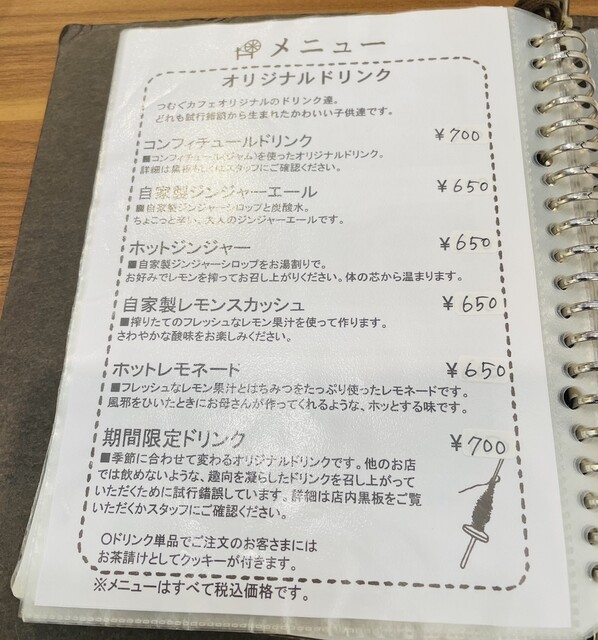 メニュー
オリジナルドリンク
つむぐカフェオリジナルのドリンク達。
どれも試行錯誤から生まれたかわいい子供達です。
コンフィチュールドリンク ¥700
■コンフィチュール(ジャム)を使ったオリジナルドリンク。
詳細は黒板もしくはスタッフにご確認ください。
自家製ジンジャーエール ¥650
■自家製ジンジャーシロップと炭酸水。
ちょこっと辛い、大人のジンジャーエールです。
ホットジンジャー ¥650
■自家製ジンジャーシロップをお湯割りで。
お好みでレモンを搾ってお召し上がりください。体の芯から温まります。
自家製レモンスカッシュ ¥650
■搾りたてのフレッシュなレモン果汁を使って作ります。
さわやかな酸味をお楽しみください。
ホットレモネード ¥650
■フレッシュなレモン果汁とはちみつをたっぷり使ったレモネードです。
風邪をひいたときにお母さんが作ってくれるような、ホッとする味です。
期間限定ドリンク ¥700
■季節に合わせて変わるオリジナルドリンクです。他のお店
では飲めないような、趣向を凝らしたドリンクを召し上がって
いただくために試行錯誤しています。詳細は店内黒板をご覧
いただくかスタッフにご確認ください。
〇ドリンク単品でご注文のお客さまには
お茶請けとしてクッキーが付きます。
※メニューはすべて税込価格です。